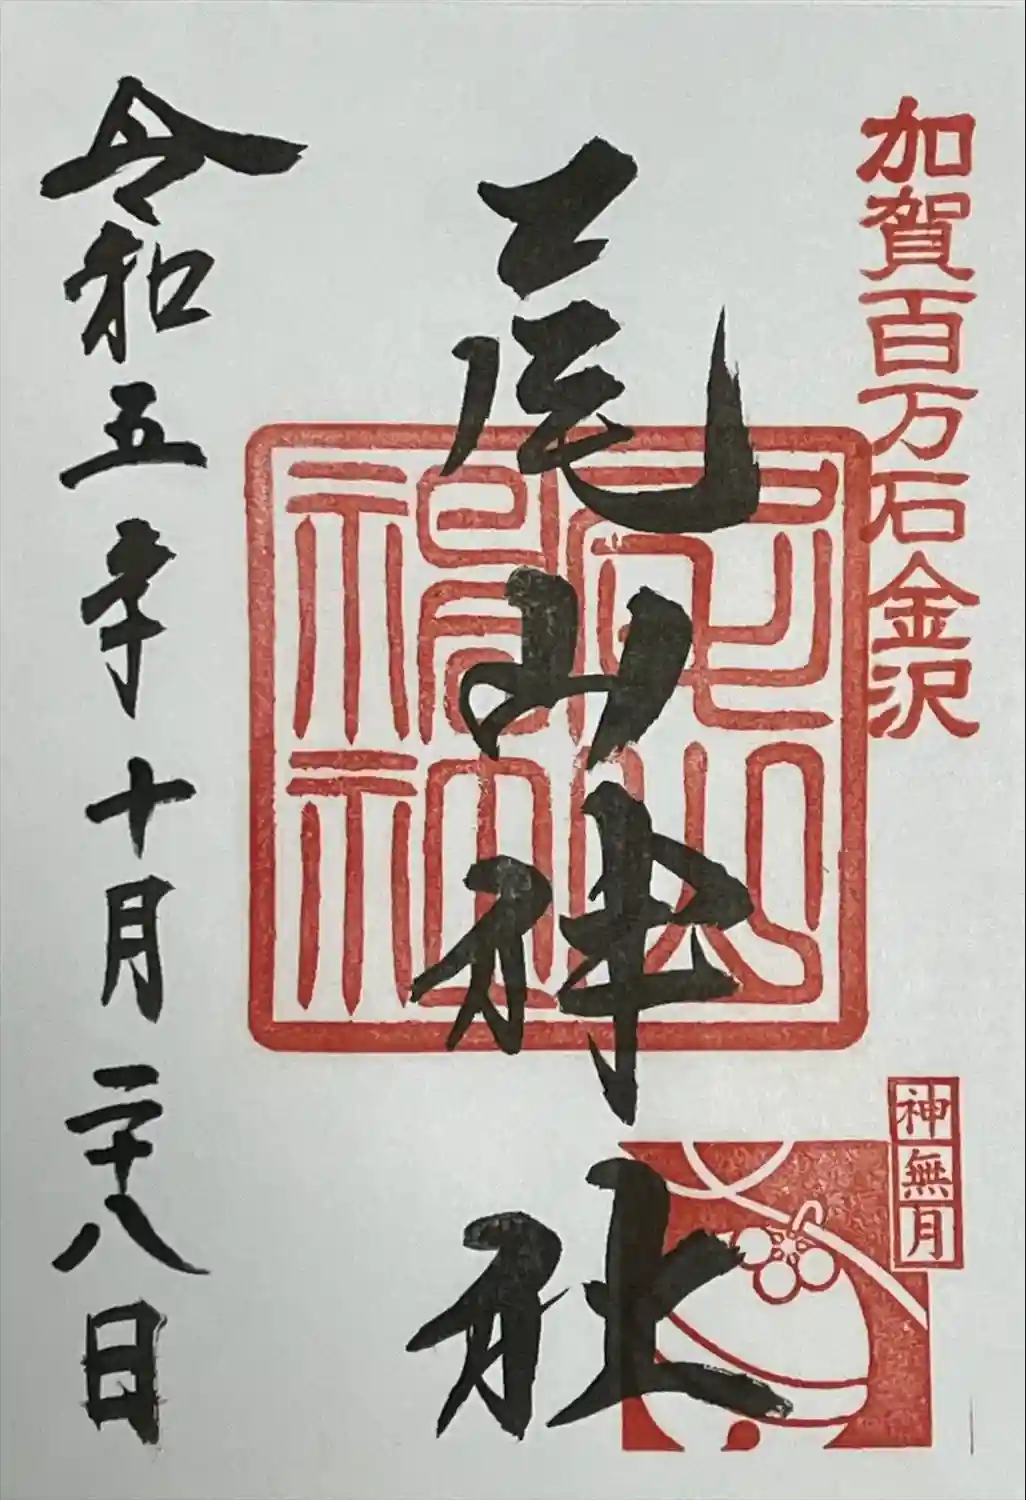 加賀百万石金沢
神無月
尾山神社
尾山神社
令和五年十月二十八日